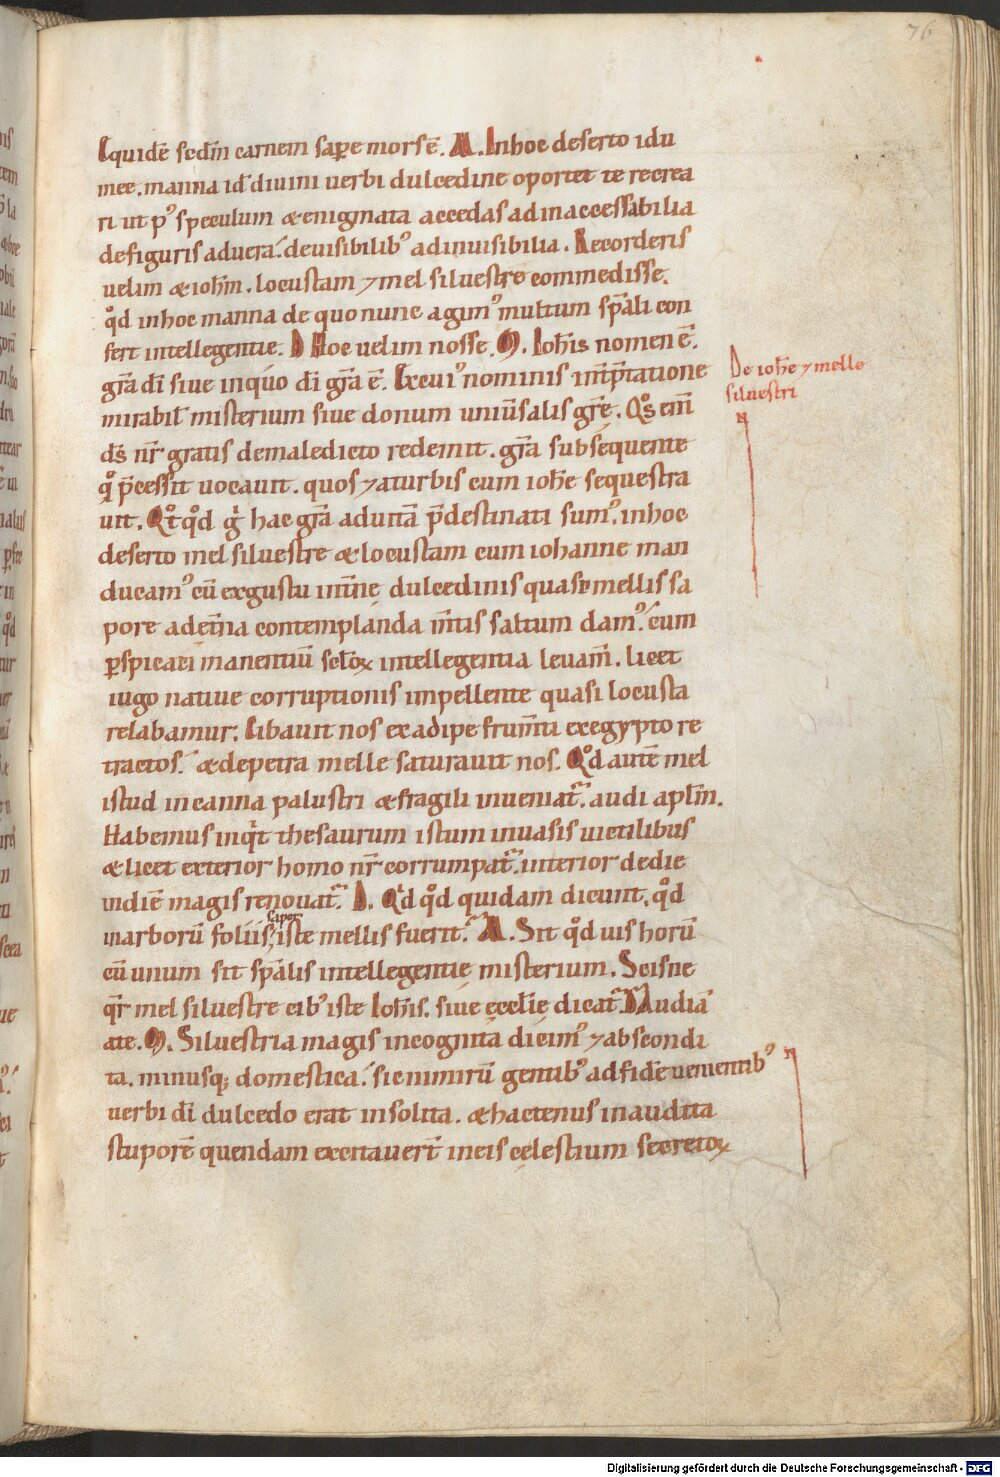 76
Equidē scdm̄ carnem saꝑe mors ē. M. In hoc deserto idu
mee. manna id ÷ diuini uerbi dulcedine oportet te recrea
ri ut pꝰ speculum & enigmata accedas ad inaccessibilia
de figuris ad uera. de uisibilibꝰ ad inuisibilia. Recorderis
uelim & ioh̄m. locustam ⁊ mel siluestre commedisse.
qͦd in hoc manna de quo nunc agimꝰ multum sp̄ali con
fert intellegentie. D Hoc uelim nosse. M. Ioh̄is nomen ē.
gr̄a dī siue in quo dī gr̄a ē. Ex cuiꝰ nominis int̄p̄tatione
mirabil̄ misterium siue donum uniūsalis gr̄e. Qͦs enī
ds̄ nr̄ gratis de maledicto redemit. gr̄a subsequente
q̄ p̄cessit uocauit. quos ⁊ a turbis cum ioh̄e sequestra
uit. Qͦtqͦd gͥ hac gr̄a ad uitā p̄destinati sumꝰ. in hoc
deserto mel siluestre & locustam cum iohanne man
ducamꝰ cū ex gustu int̄nę dulcedinis quasi mellis sa
pore ad et̄na contemplanda m̄tis saltum damꝰ. cum
ꝑspicaci in manentiū sc̄loꝝ intellegentia leuam̄. licet
iugo natiue corruptionis impellente quasi locusta
relabamur. Cibauit nos ex adipe frum̄ti ex egypto re
tractos. & de petra melle saturauit nos. Qͦd autē mel
istud in canna palustri & fragili inueniat᷑. audi apl̄m.
Habemus inqͥt thesaurum istum in uasis uictilibus
& licet exterior homo nr̄ corrumpat᷑. interior de die
in diē magis renouat᷑. D. Qͥd qͦd quidam dicunt. qͦd
in arborū foliis sapor iste mellis fuerit. M. Sit qͦd uis horū
cū unum sit sp̄alis intellegentię misterium. Scisne
qr̄ mel siluestre cibꝰ iste Ioh̄is. siue ęccl̄ię dicat᷑. D Audiā
a te. M. Siluestria magis incognita dicimꝰ ⁊ abscondi
ta. minusqꝫ domestica. sic nimirū gentibꝰ ad fidē uenientibꝰ
uerbi dī dulcedo erat insolita. & hactenus inaudita
stuporē quendam excitauer̄t in eis cęlestium secretoꝝ
De ioh̄e ⁊ melle
siluestri
Digitalisierung gefördert durch die Deutsche Forschungsgemeinschaft - DFG